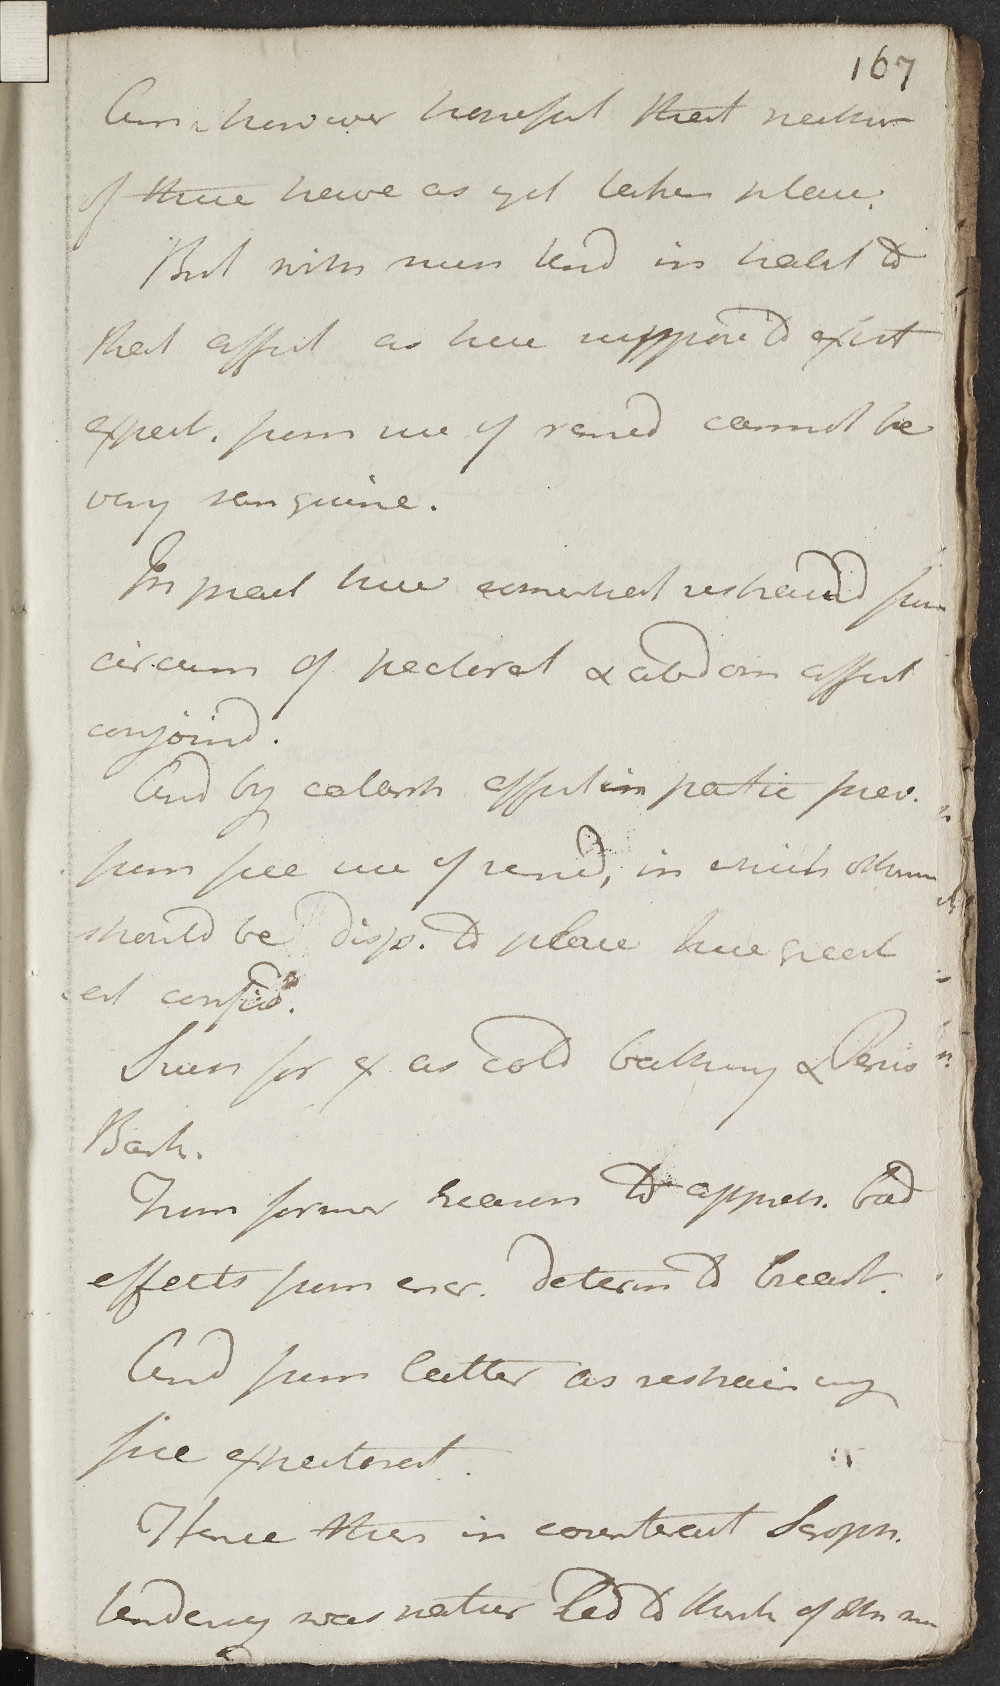 167
Am however hopeful that neither
of these have as yet taken place.
But with even tend in habit to
that affect as here suppos'd exist
expect. from use of remed cannot be
very sanguine.
In pract here somewhat restraind from
circum of pectoral & abdom affect
conjoind.
And by catarrh affect in patie prev.
from free use of remed, in which otherw
should be disp. to place here great
est confid.
Such for ex as cold bathing & Peruv
Bark.
From former reason to appreh. bad
effects from incr. determ to breast.
And from latter as restraining
free expectorat.
Hence then in counteract Scroph.
tendency was natur led to think of other